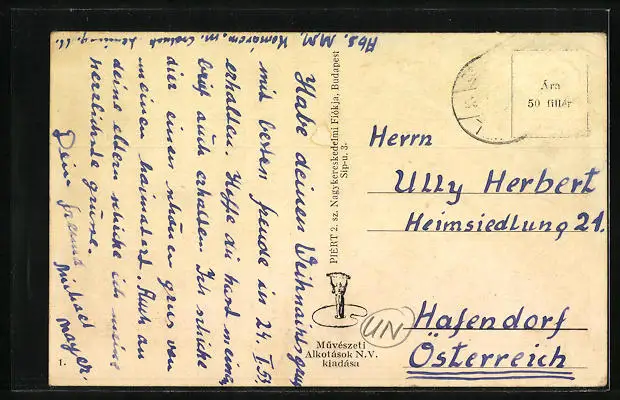 Abs. M.M. Komárom, m.
Habe deinen Weihnachtsgrus
mit besten freude in 24. I. 53
erhalten. Hoffe du hast meinen
brief auch erhalten. Ich schicke
dir einen schönen grus von
meinen heimatort. Auch an
deine eltern schicke ich meine
herzlichste grüse.
Dein freund
Michael
Mayer.
1.
PIÉRT 2. sz. Nagykereskedelmi Fiókja, Budapest
Síp-u. 3.
Művészeti
Alkotások N.V.
kiadása
UN
Ára
50 fillér
Herrn
Ully Herbert
Heimsiedlung 21.
Hafendorf
Österreich